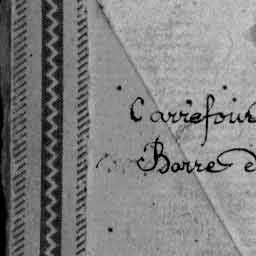 Carrefour
Barre d